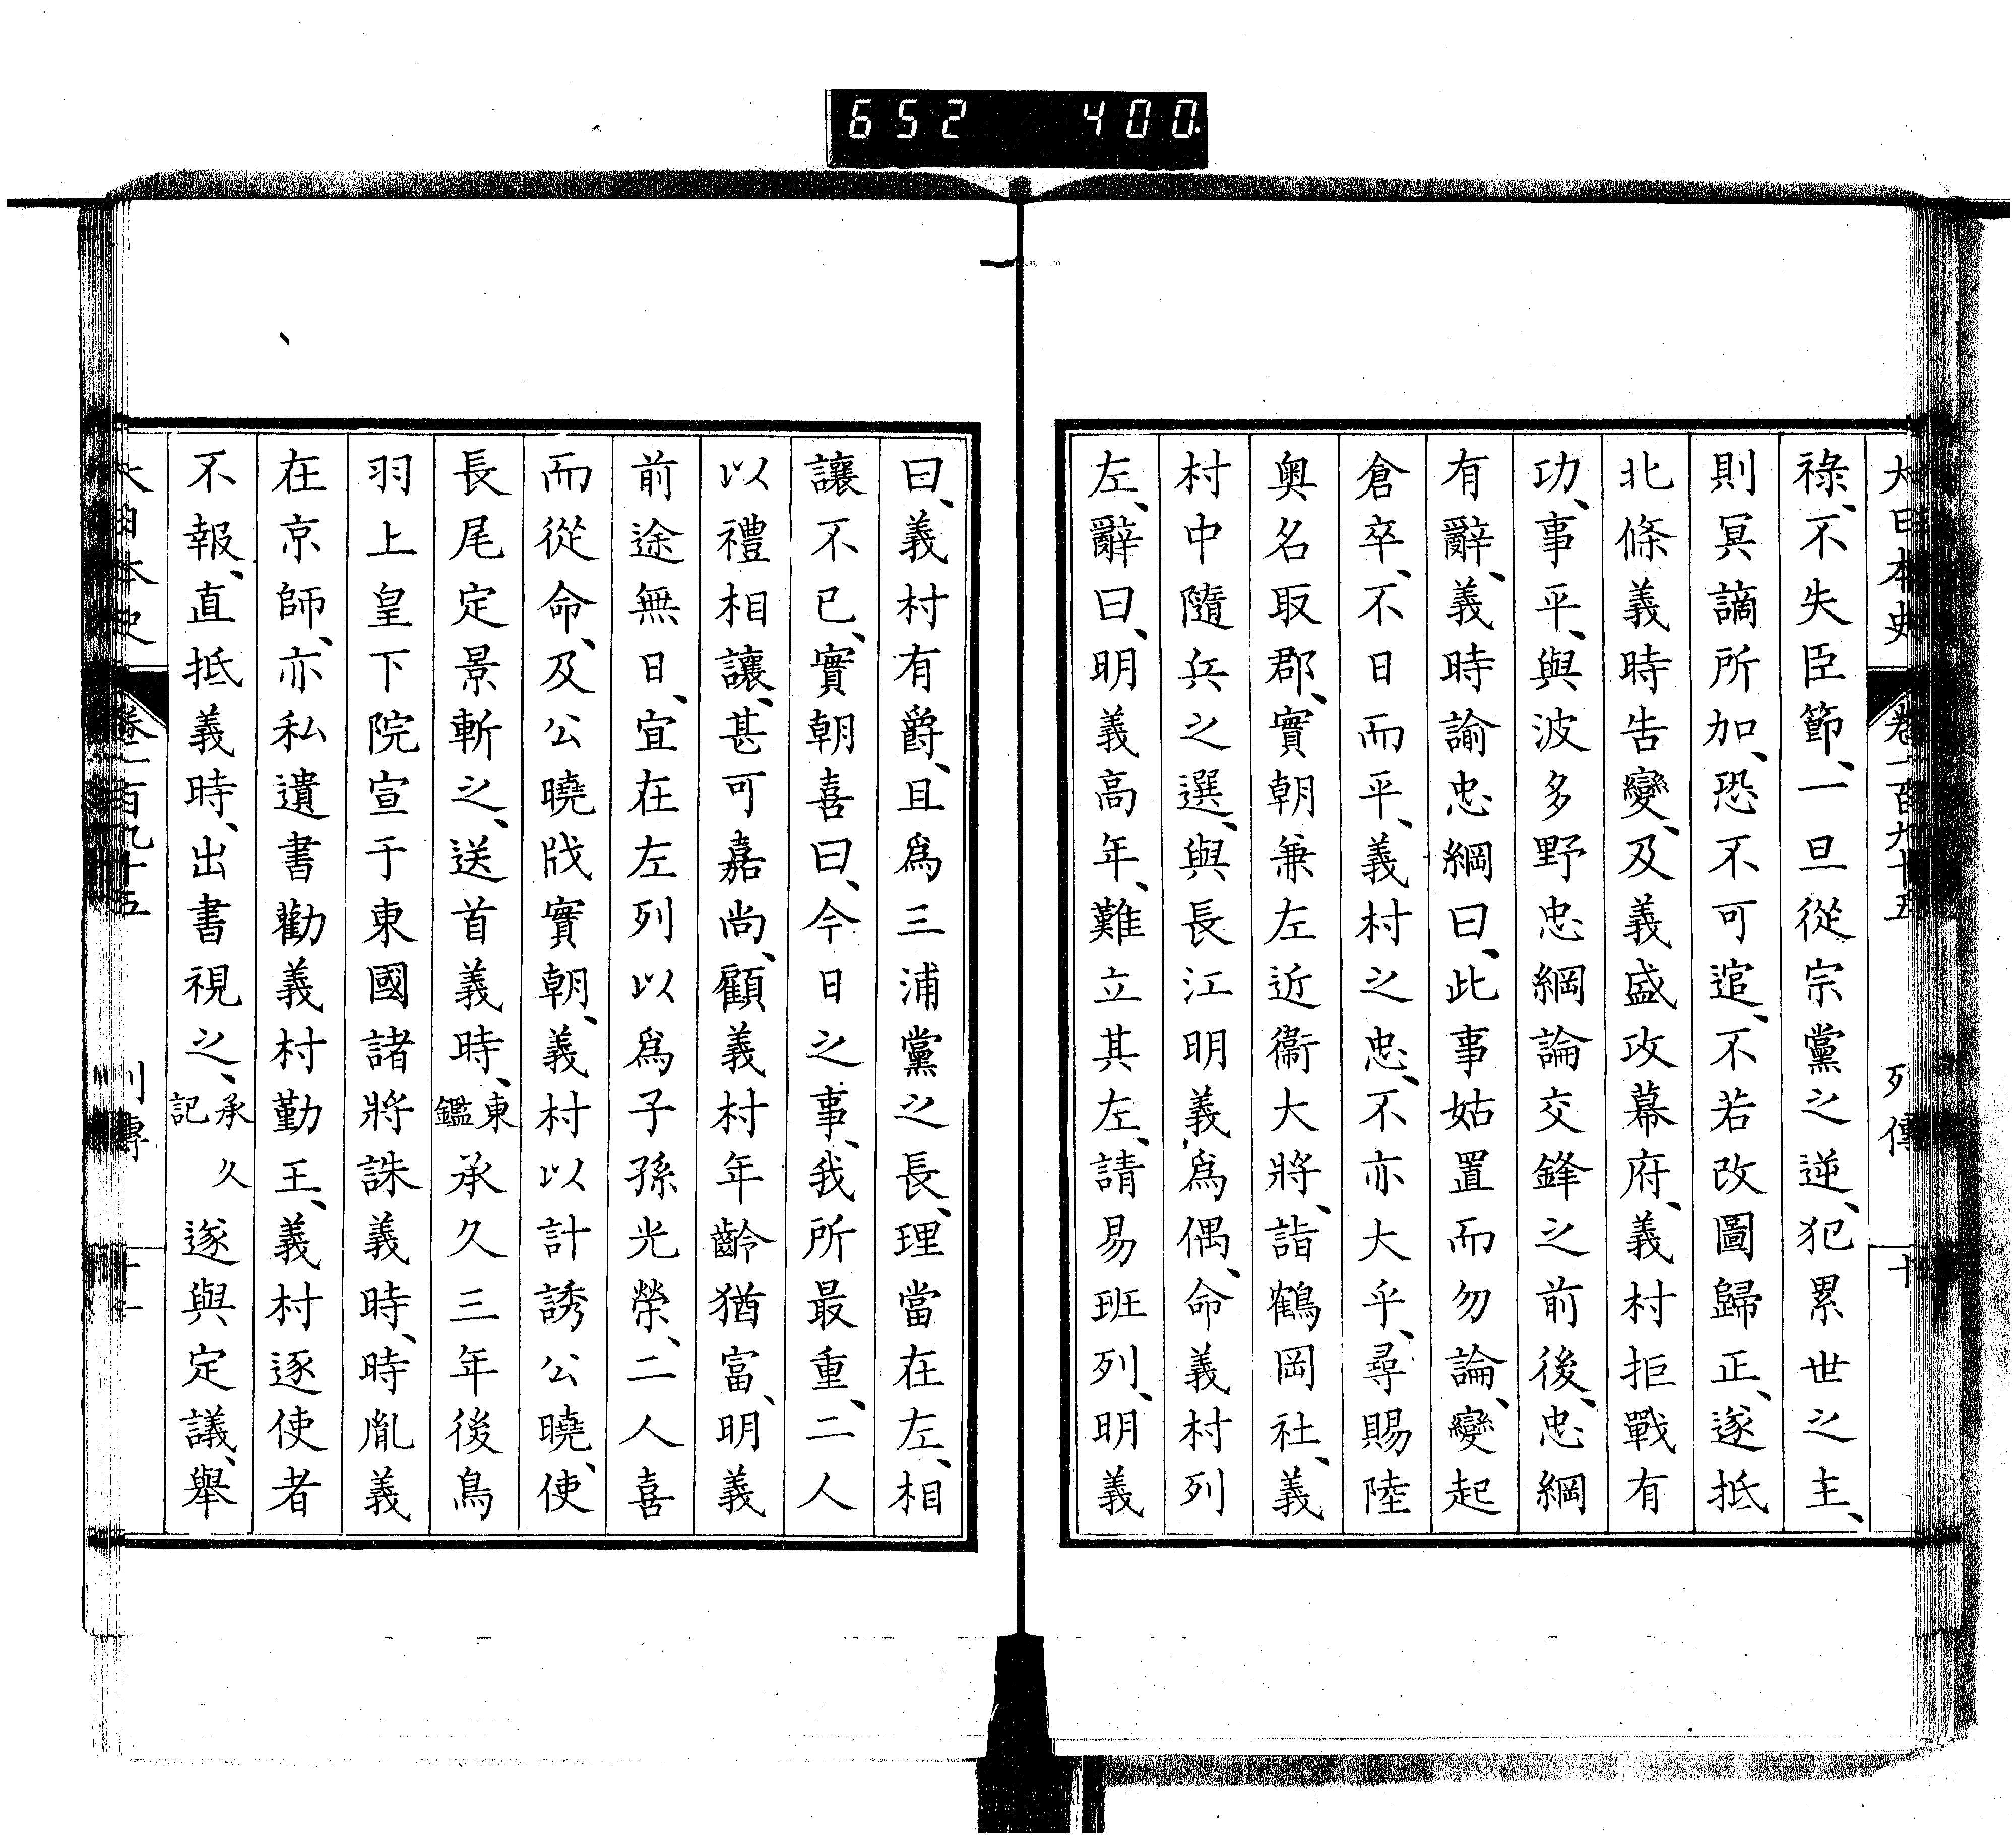 652 400
大日本史 卷一百九十五 列傳 十
祿、不失臣節、一旦從宗黨之逆、犯累世之主、
則冥謫所加、恐不可逭、不若改圖歸正、遂抵
北條義時告變、及義盛攻幕府、義村拒戰有
功、事平、與波多野忠綱論交鋒之前後、忠綱
有辭、義時諭忠綱曰、此事姑置而勿論、變起
倉卒、不日而平、義村之忠、不亦大乎、尋賜陸
奥名取郡、實朝兼左近衞大將、詣鶴岡社、義
村中隨兵之選、與長江明義、爲偶、命義村列
左、辭曰、明義高年、難立其左、請易班列、明義
曰、義村有爵、且爲三浦黨之長、理當在左、相
讓不已、實朝喜曰、今日之事、我所最重、二人
以禮相讓、甚可嘉尚、顧義村年齡猶富、明義
前途無日、宜在左列以爲子孫光榮、二人喜
而從命、及公曉戕實朝、義村以計誘公曉、使
長尾定景斬之、送首義時、東鑑 承久三年後鳥
羽上皇下院宣于東國諸將誅義時、時胤義
在京師、亦私遺書勸義村勤王、義村逐使者
不報、直抵義時、出書視之、承久記 遂與定議、舉
大日本史 卷一百九十五 列傳 十一